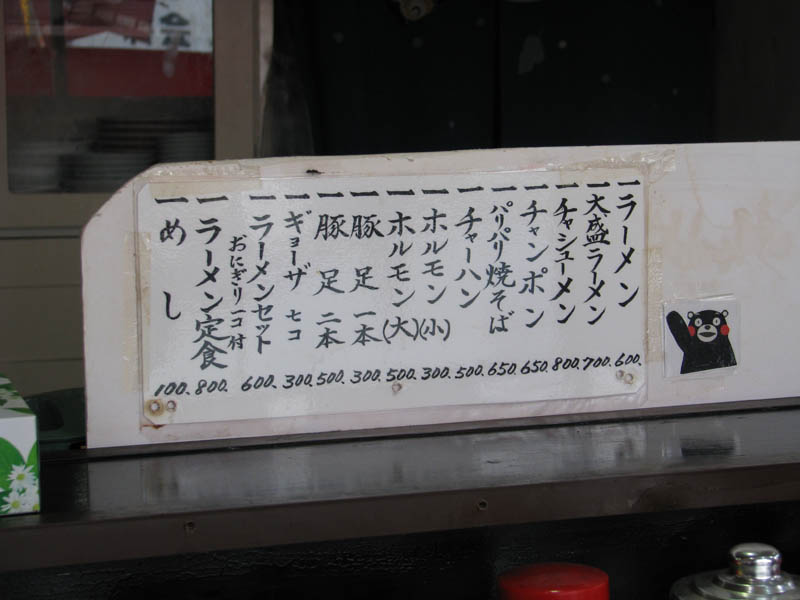 一ラーメン 600.
一大盛ラーメン 700.
一チャシューメン 800.
一チャンポン 650.
一パリパリ焼そば 650.
一チャーハン 500.
一ホルモン(小) 300.
一ホルモン(大) 500.
一豚足 一本 300.
一豚足 二本 500.
一ギョーザ 七コ 300.
一ラーメンセット 600.
おにぎり一コ付
一ラーメン定食 800.
一めし 100.